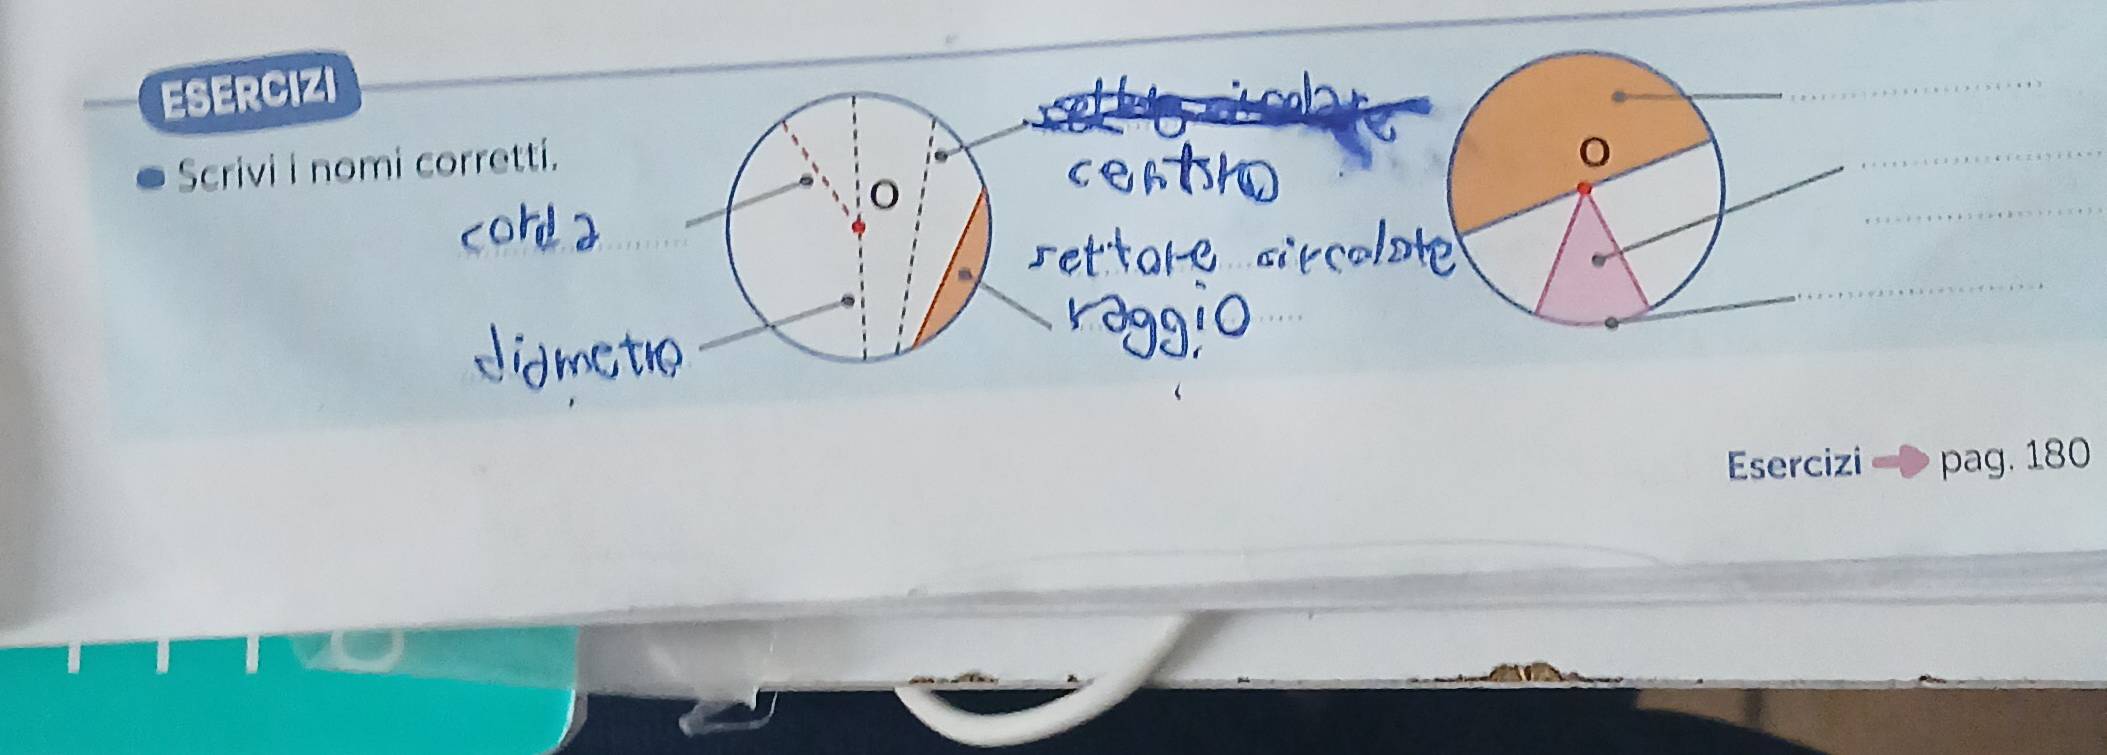 ESERCIZI
Scrivi i nomi corretti.
corda
diametro
O
settore circolare
centro
settore circolare
raggio
O
Esercizi pag. 180